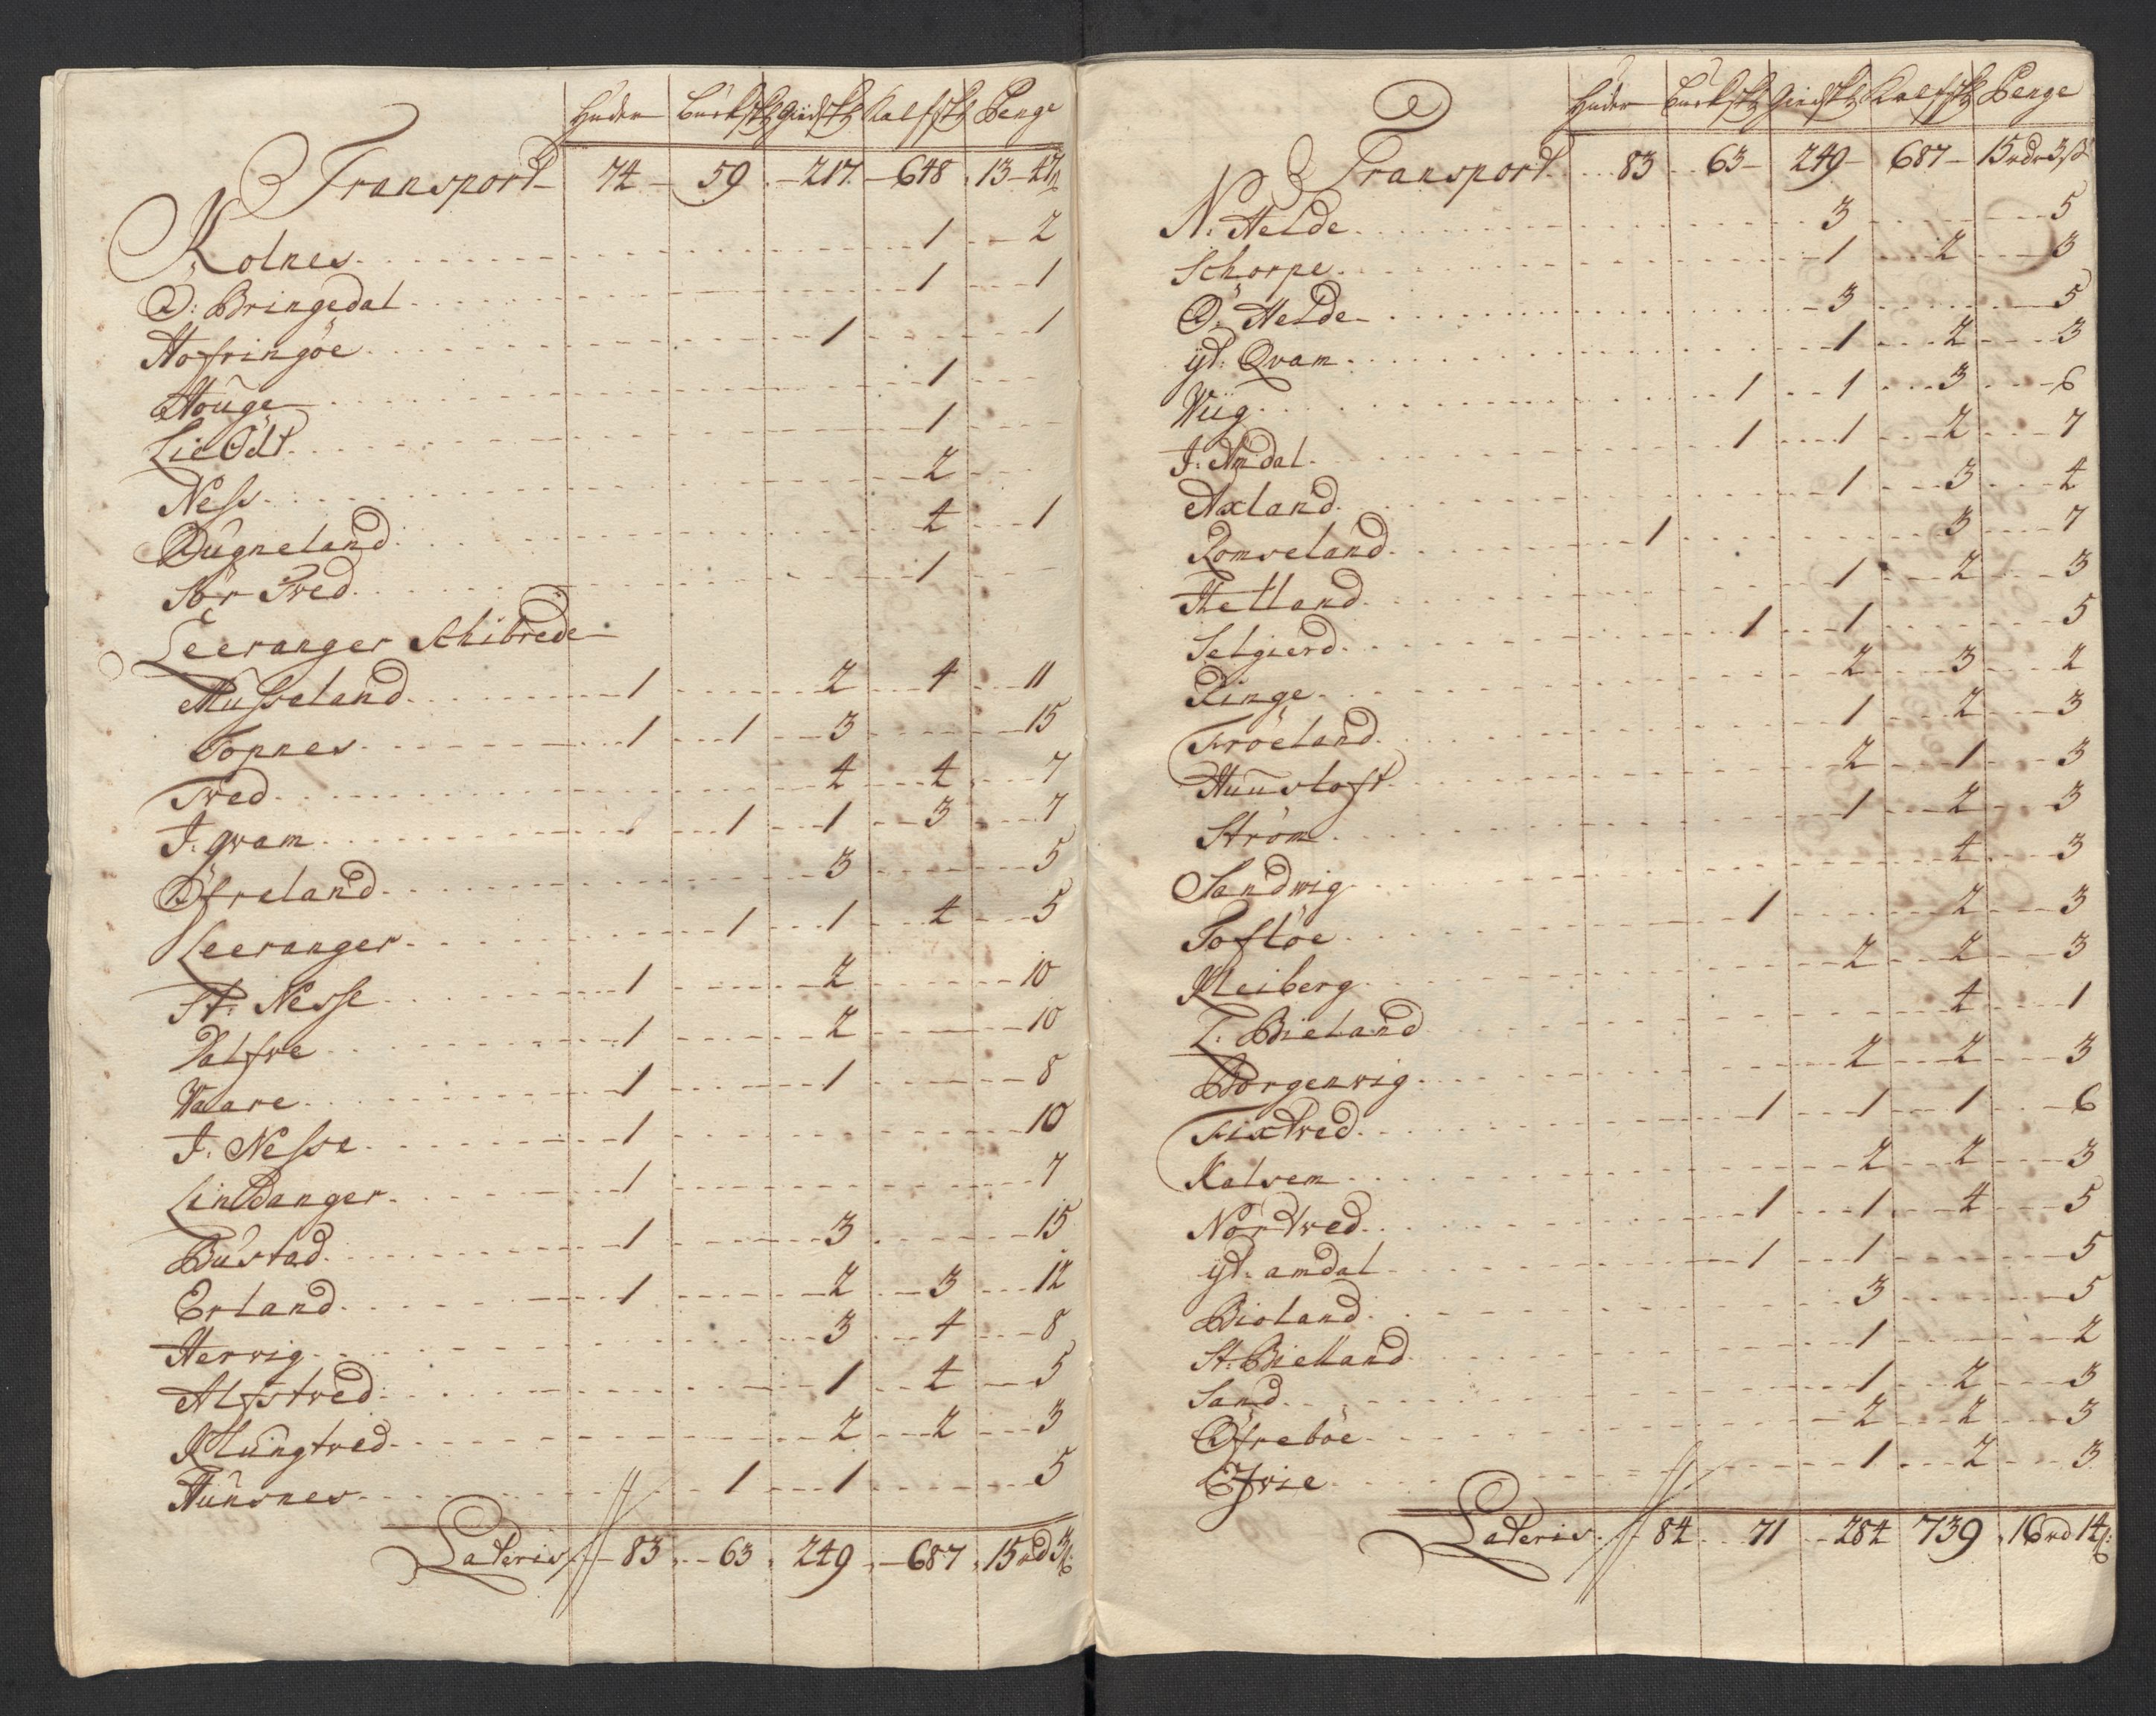 Huder Bucksk: Giedsk: Kalfsk: Penge
Transport 74 59 217 648 13 - 47 ß
Kolnes 1 2
Ö: Bringedal 1 1
Hofringöe 1 1
Houge 1
Lie Ödt 1
Ness 2
Dugneland 4 1
Sör Tved 1
Leeranger Schibrede
Musseland 1 2 4 11
Topnes 1 1 3 15
Tved 4 4 7
J: qvam 1 1 3 7
Öfreland 3 5
Leeranger 1 1 4 5
St: Nesse 1 2 10
Valfve 1 2 10
Waare 1 1 8
J: Nesse 1 10
Lindanger 1 7
Bustad 1 3 15
Erland 1 2 3 12
Hervig 3 4 8
Alfstved 1 4 5
Klungtved 2 2 3
Hunsnes 1 1 5
Lateris 83 63 249 687 15 rd 3 ß:
Huder Bucksk: Giedsk: Kalfsk: Penge
Transport 83 63 249 687 15 rdr 3 ß
N: Helde 3 5
Schorpe 1 2 3
Ö: Helde 3 5
yt: Qvam 1 2 3
Wiig 1 1 3 6
J: Amdal 1 1 2 7
Axland 1 3 4
Romseland 1 3 7
Hetland 1 2 3
Selgierd 1 1 5
Ringe 2 3 2
Fröeland 1 2 3
Huusloft 2 1 3
Ström 1 2 3
Sandwig 4 3
Toftöe 1 2 3
Kleiberg 2 2 3
L: Bieland 4 1
Borgenvig 2 2 3
Fixtved 1 1 1 6
Kalvem 2 2 3
Nordtved 1 1 4 5
yt: amdal 1 1 5
Bioland 3 5
St: Bielland 1 2
Sand 1 2 3
Öfreböe 2 2 3
Efvie 1 2 3
Lateris 84 71 284 739 16 rd 14 ß: